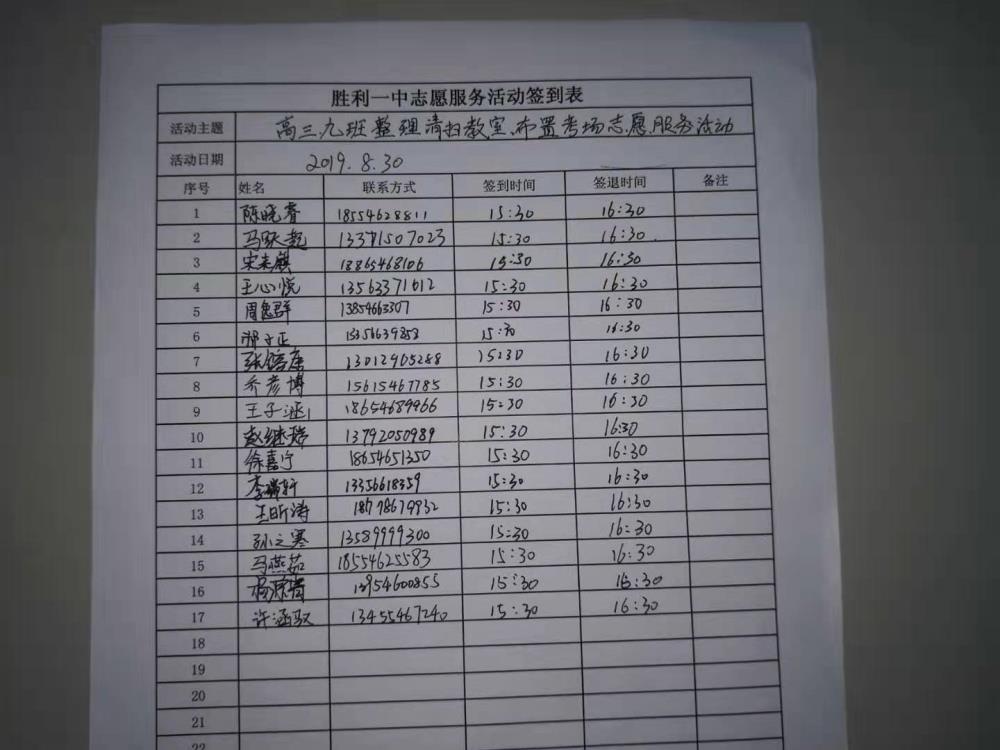 胜利一中志愿服务活动签到表
活动主题 高三九班整理清扫教室、布置考场志愿服务活动
活动日期 2019.8.30
序号 姓名 联系方式 签到时间 签退时间 备注
1 陈晓睿 18554628811 15:30 16:30
2 马跃超 13371507023 15:30 16:30
3 宋来麒 18865468106 15:30 16:30
4 王心悦 13563371612 15:30 16:30
5 周逸群 13854663307 15:30 16:30
6 祁子正 13356639853 15:30 16:30
7 张 13012905288 15:30 16:30
8 乔彦博 15615467785 15:30 16:30
9 王子涵 18654689966 15:30 16:30
10 赵继瑞 13792050989 15:30 16:30
11 徐嘉宁 18654651350 15:30 16:30
12 李瑞轩 13356618359 15:30 16:30
13 王昕涛 15:30 16:30
14 孙之寒 13589999300 15:30 16:30
15 马燕茹 18554625583 15:30 16:30
16 13954600855 15:30 16:30
17 许涵驭 13455467240 15:30 16:30
18
19
20
21
22